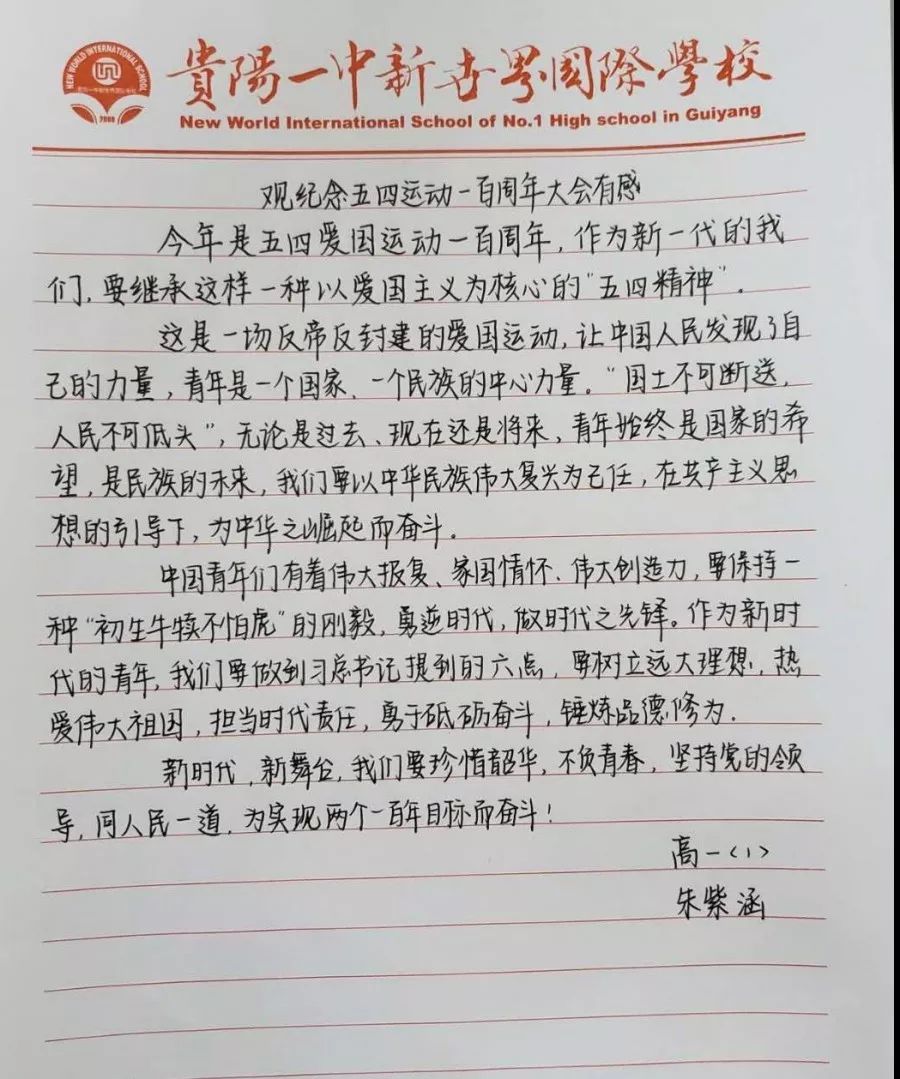 NEW WORLD INTERNATIONAL SCHOOL
2000
貴陽一中新世界國際學校
New World International School of No.1 High school in Guiyang
观纪念五四运动一百周年大会有感
今年是五四爱国运动一百周年,作为新一代的我
们,要继承这样一种以爱国主义为核心的"五四精神".
这是一场反帝反封建的爱国运动,让中国人民发现了自
己的力量,青年是一个国家、一个民族的中心力量。"国土不可断送,
人民不可低头",无论是过去、现在还是将来,青年始终是国家的希
望,是民族的未来,我们要以中华民族伟大复兴为己任,在共产主义思
想的引导下,为中华之崛起而奋斗.
中国青年们有着伟大报复、家国情怀、伟大创造力,要保持一
种"初生牛犊不怕虎"的刚毅,勇逆时代,做时代之先锋。作为新时
代的青年,我们要做到习总书记提到的六点,要树立远大理想,热
爱伟大祖国,担当时代责任,勇于砥砺奋斗,锤炼品德修为.
新时代,新舞台,我们要珍惜韶华,不负青春,坚持党的领
导,同人民一道,为实现两个一百年目标而奋斗!
高一<1>
朱紫涵